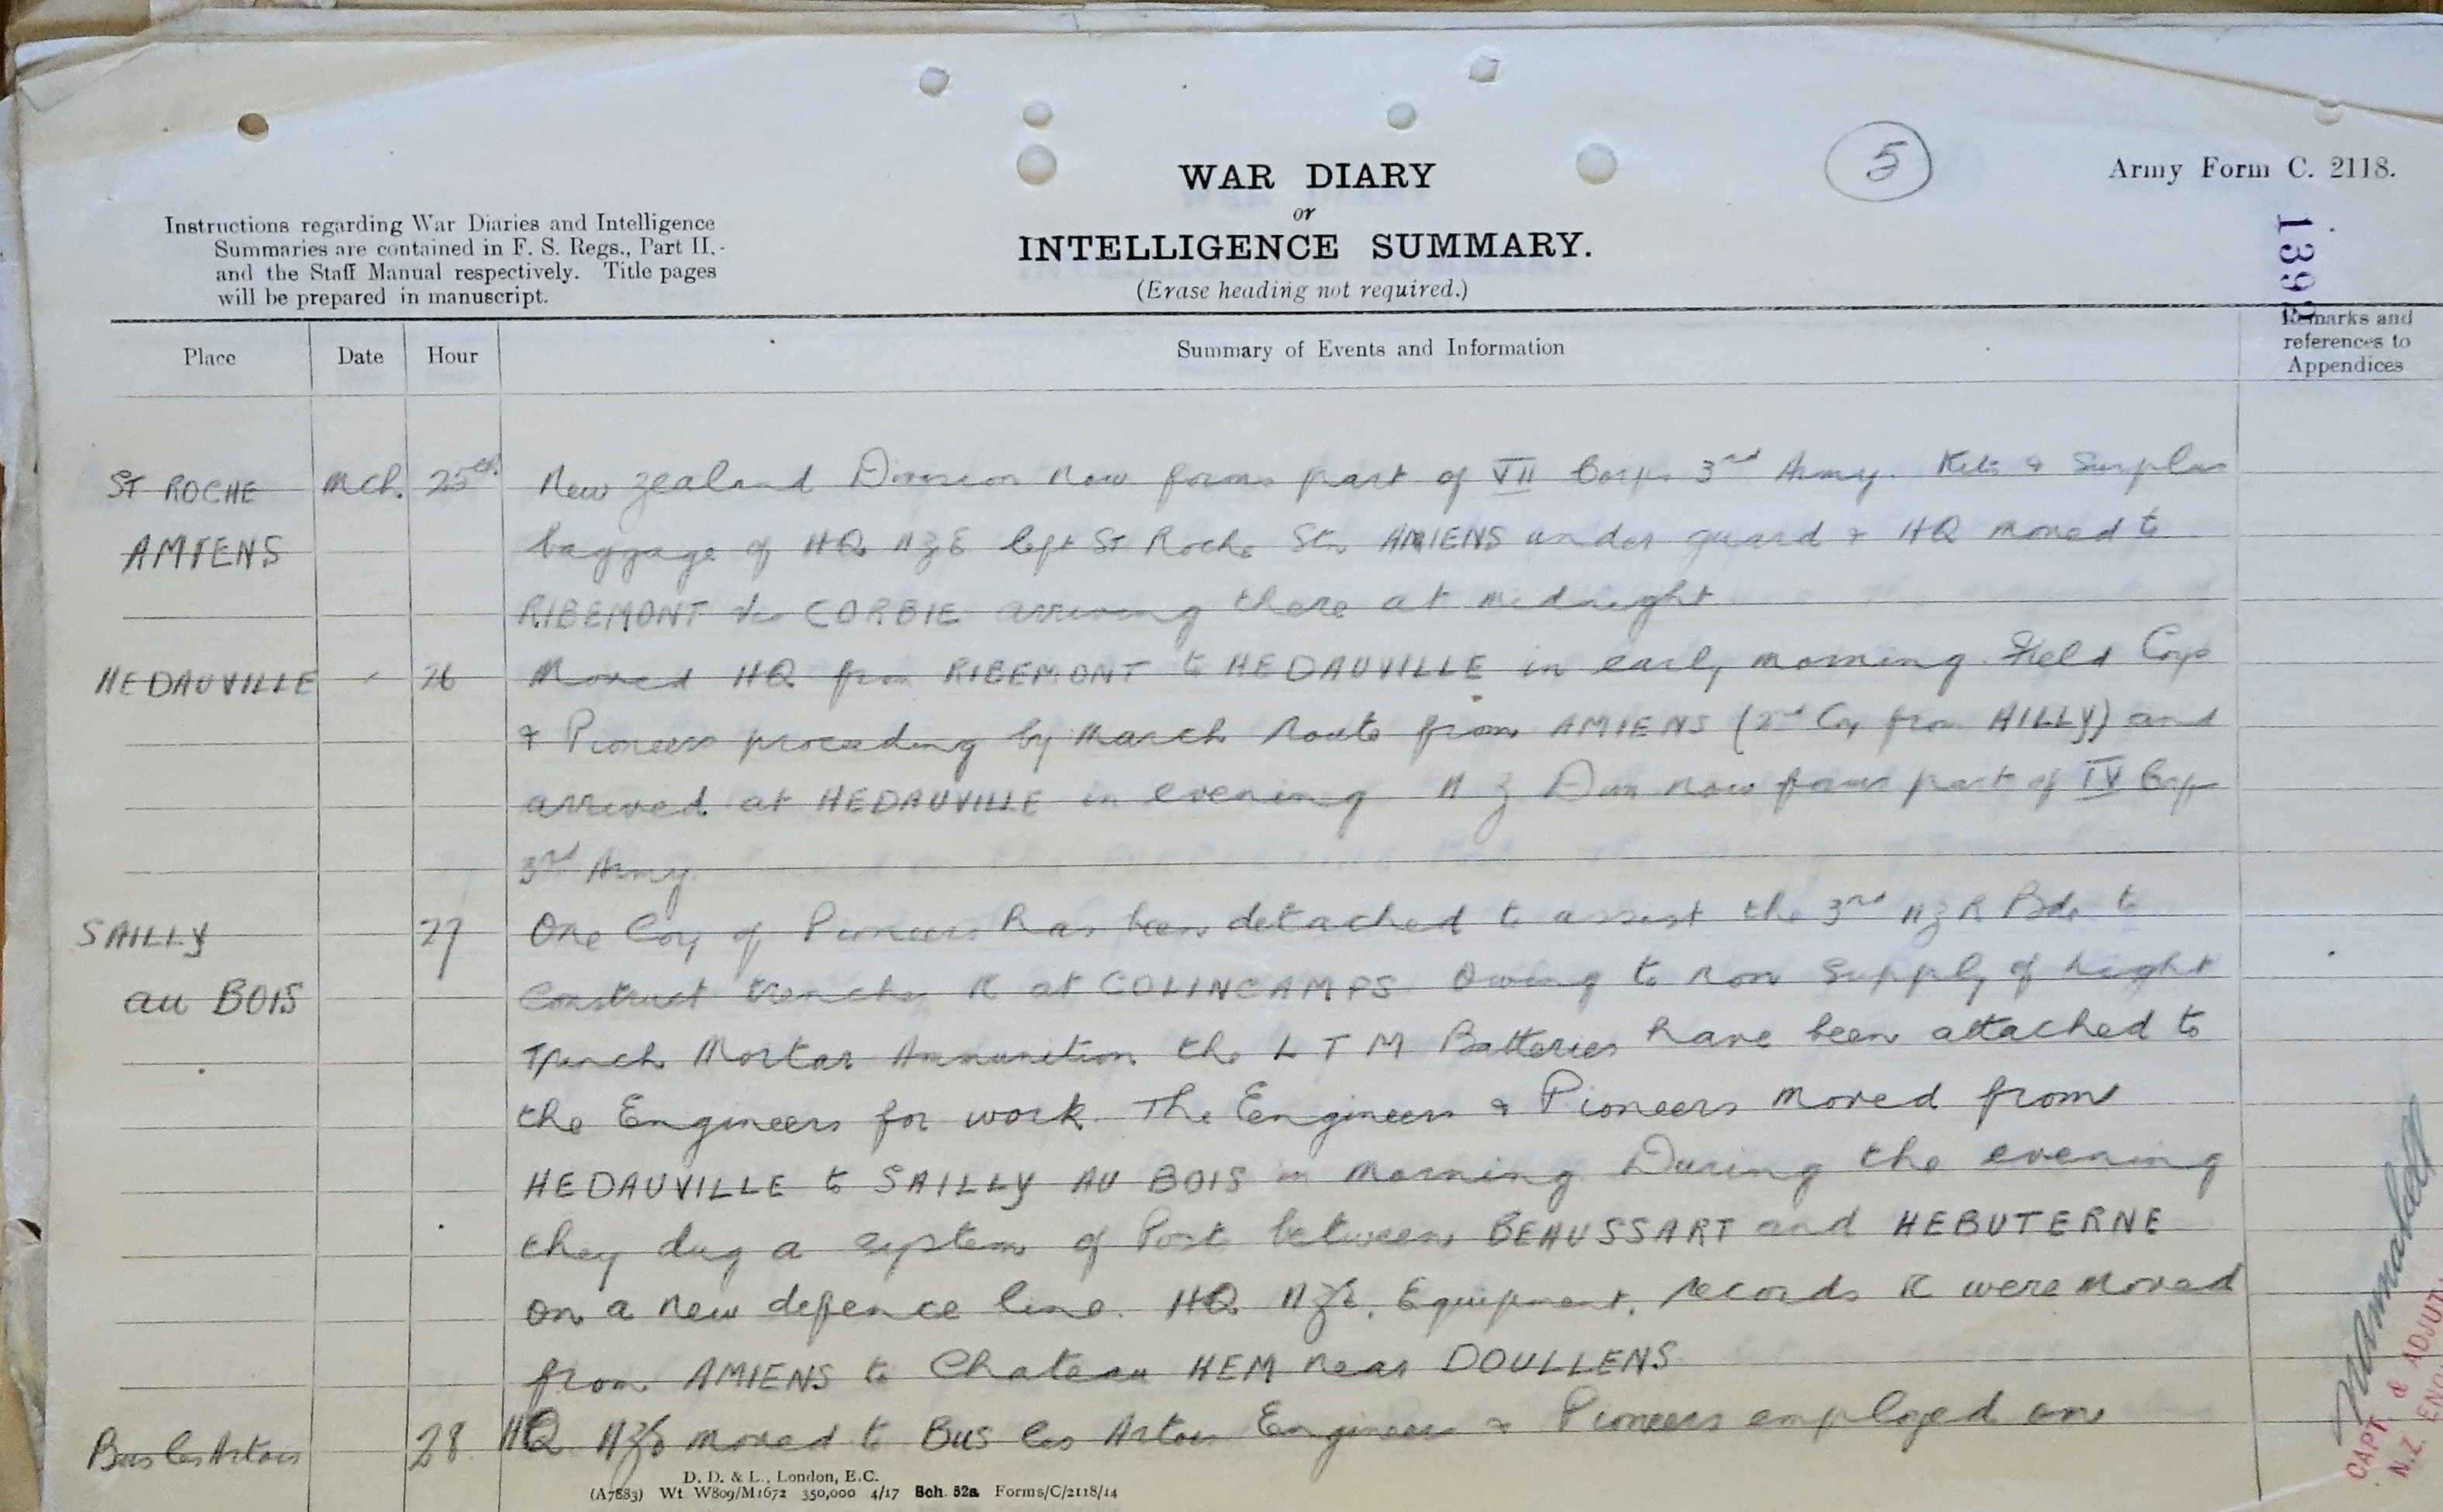 5
Army Form C. 2118.
WAR DIARY
or
INTELLIGENCE SUMMARY.
(Erase heading not required.)
Instructions regarding War Diaries and Intelligence
Summaries are contained in F. S. Regs., Part II.
and the Staff Manual respectively. Title pages
will be prepared in manuscript.
139
Place Date Hour Summary of Events and Information Remarks and references to Appendices
ST ROCHE Mch. 25th New Zealand Division now forms part of VII Corps 3rd Army. Kits & Surplus
AMIENS baggage of HQ NZE left St Roche Stn AMIENS under guard & HQ moved to
RIBEMONT via CORBIE arriving there at midnight
HEDAUVILLE " 26 Moved HQ from RIBEMONT to HEDAUVILLE in early morning. Field Coys
& Pioneers proceeding by March Route from AMIENS (2nd Coy from AILLY) and
arrived at HEDAUVILLE in evening N Z Divn now forms part of IV Corps
3rd Army.
SAILLY 27 One Coy of Pioneers has been detached to assist the 3rd NZR Bde to
au BOIS Construct trenches &c at COLINCAMPS. Owing to non supply of Light
Trench Mortar Ammunition the L T M Batteries have been attached to
the Engineers for work. The Engineers & Pioneers moved from
HEDAUVILLE to SAILLY AU BOIS in morning During the evening
they dug a system of Post between BEAUSSART and HEBUTERNE
on a new defence line. HQ NZE, Equipment, records &c were moved
from AMIENS to Chateau HEM near DOULLENS
Bus les Artois 28 HQ NZE moved to Bus les Artois Engineers & Pioneers employed on
CAPT. & ADJUT.
N.Z. ENG
D. D. & L., London, E.C.
(A7883) Wt W809/M1672 350,000 4/17 Sch. 52a Forms/C/2118/14